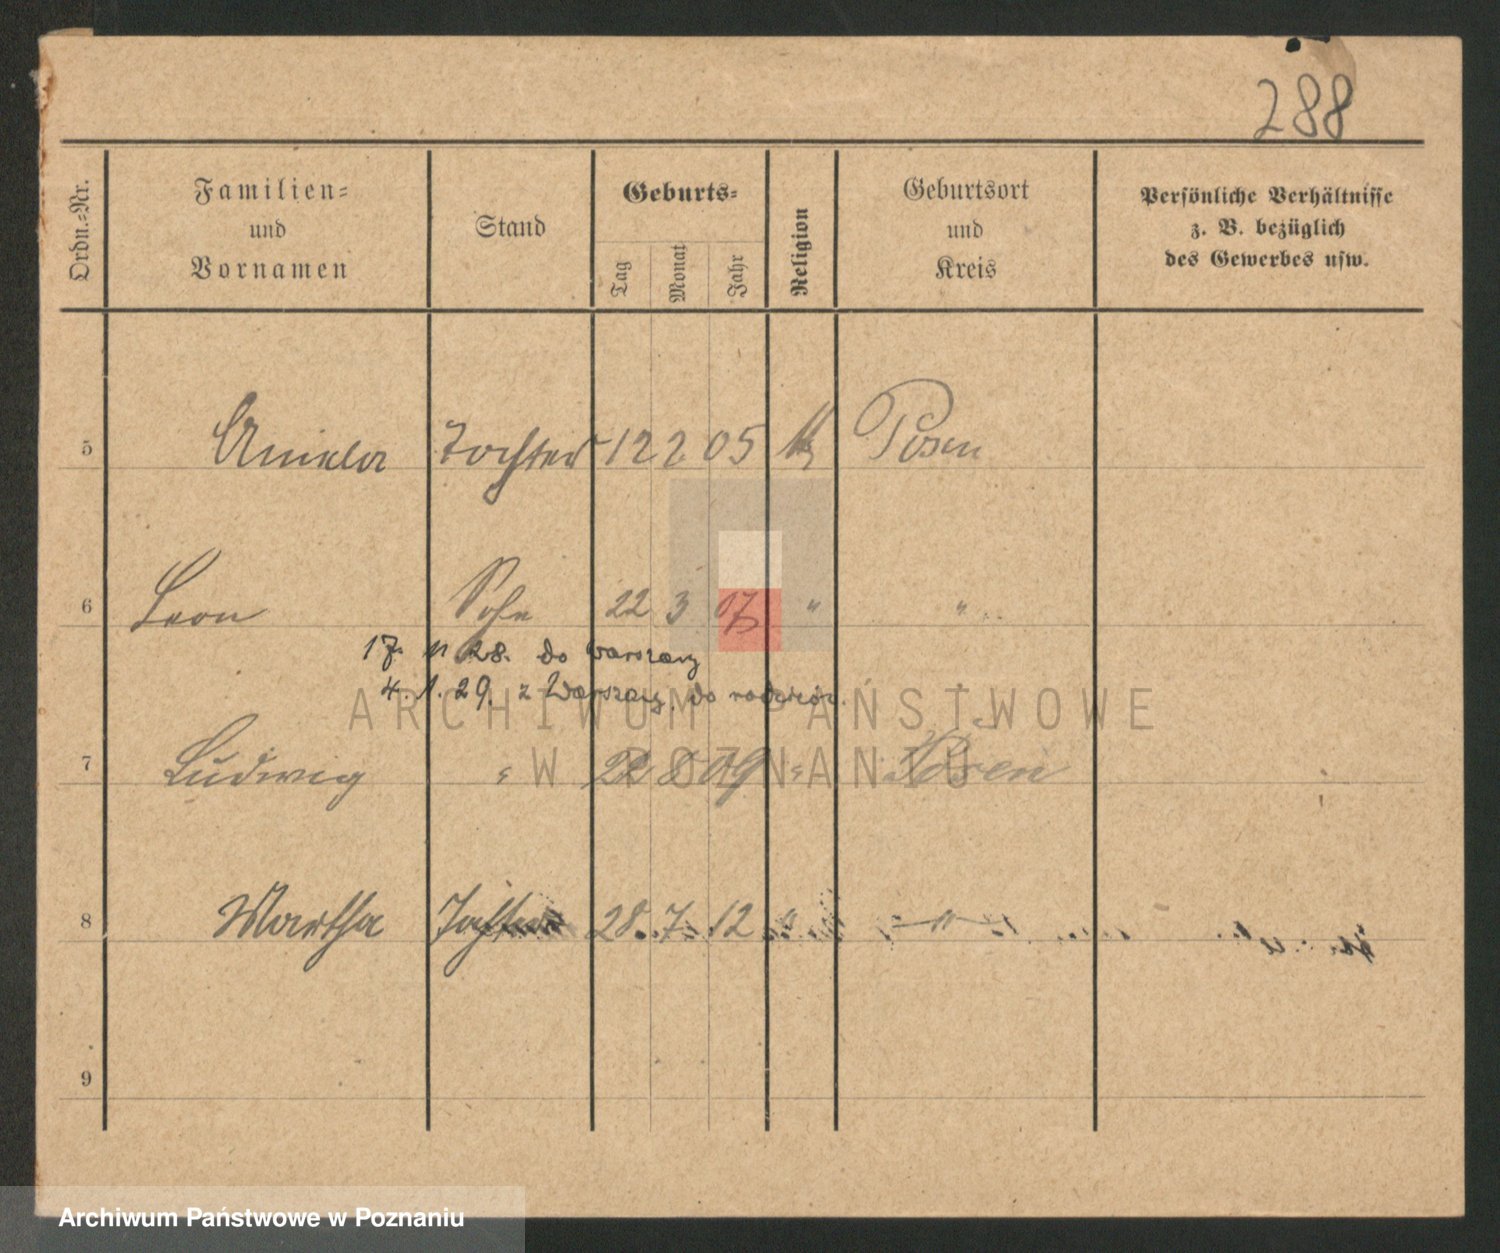 288
Ordn.-Nr. Familien- und Vornamen Stand Geburts- Tag Monat Jahr Religion Geburtsort und Kreis Persönliche Verhältnisse z. B. bezüglich des Gewerbes usw.
5 Aniela Tochter 12 2 05 K Posen
6 Leon Sohn 22 3 07 " "
17. 11 28. do Warszawy
4. 1. 29. z Warszawy do rodziców.
ARCHIWUM PAŃSTWOWE
W POZNANIU
7 Ludwig " 22 8 09 " Posen
8 Martha Tochter 28. 7 12 " — " —
9
Archiwum Państwowe w Poznaniu